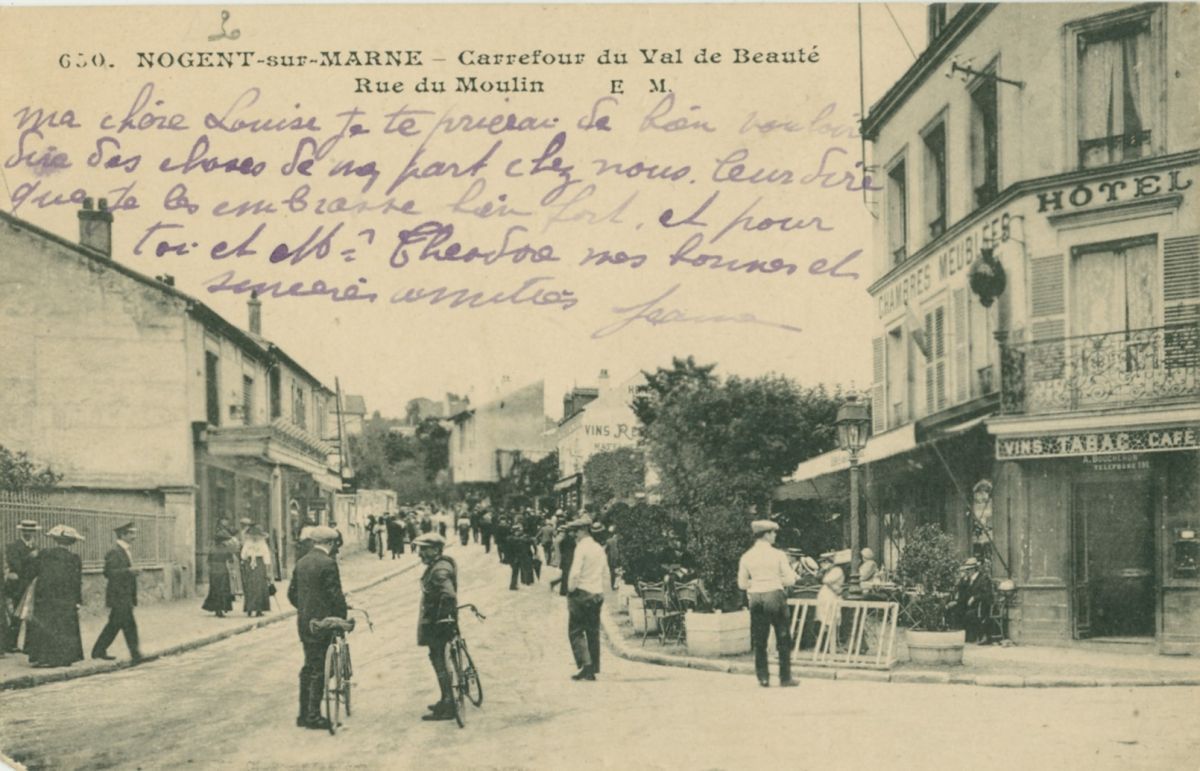 650. NOGENT-sur-MARNE - Carrefour du Val de Beauté
Rue du Moulin E M.
ma chère Louise je te prierai de bien vouloir
dire des choses de ma part chez nous. leur dire
que je les embrasse bien fort. et pour
toi et Mr Theodore mes bonnes et
sincères amitiés
Jeanne
HÔTEL
CHAMBRES MEUBLEES
VINS RE
VINS TABAC CAFÉ
A. BOUCHERON
TELEPHONE